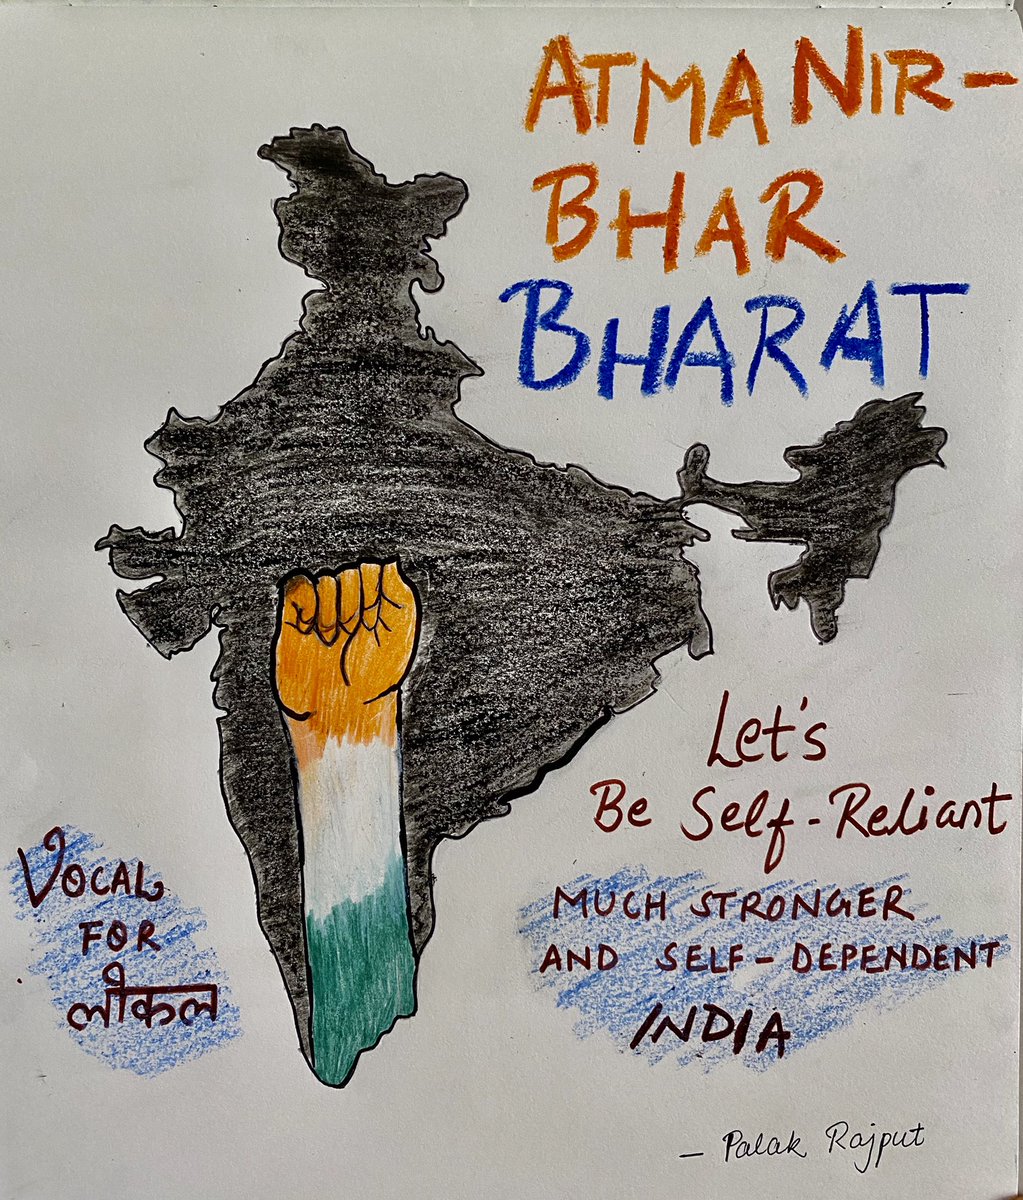 ATMA NIR-
BHAR
BHARAT
Let's
Be Self-Reliant
MUCH STRONGER
AND SELF-DEPENDENT
INDIA
VOCAL
FOR
लोकल
- Palak Rajput